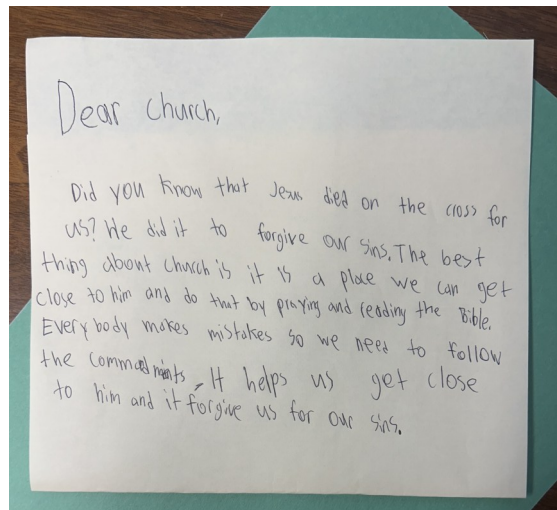 Dear Church,
Did you know that Jesus died on the cross for
us? He did it to forgive our sins. The best
thing about Church is it is a place we can get
close to him and do that by praying and reading the Bible.
Everybody makes mistakes so we need to follow
the commandments. It helps us get close
to him and it forgive us for our sins.